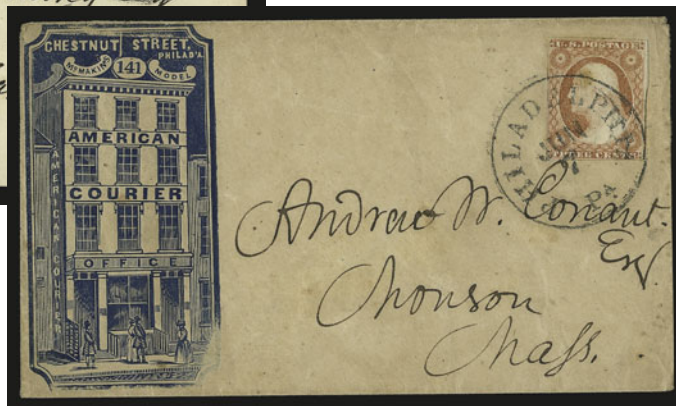 CHESTNUT STREET,
PHILAD'A.
McMAKIN'S 141 MODEL
AMERICAN
COURIER
OFFICE
AMERICAN COURIER
U.S. POSTAGE
THREE CENTS
PHILADELPHIA Pa.
JUN
Andrew W. Conant.
Esq.
Monson
Mass.